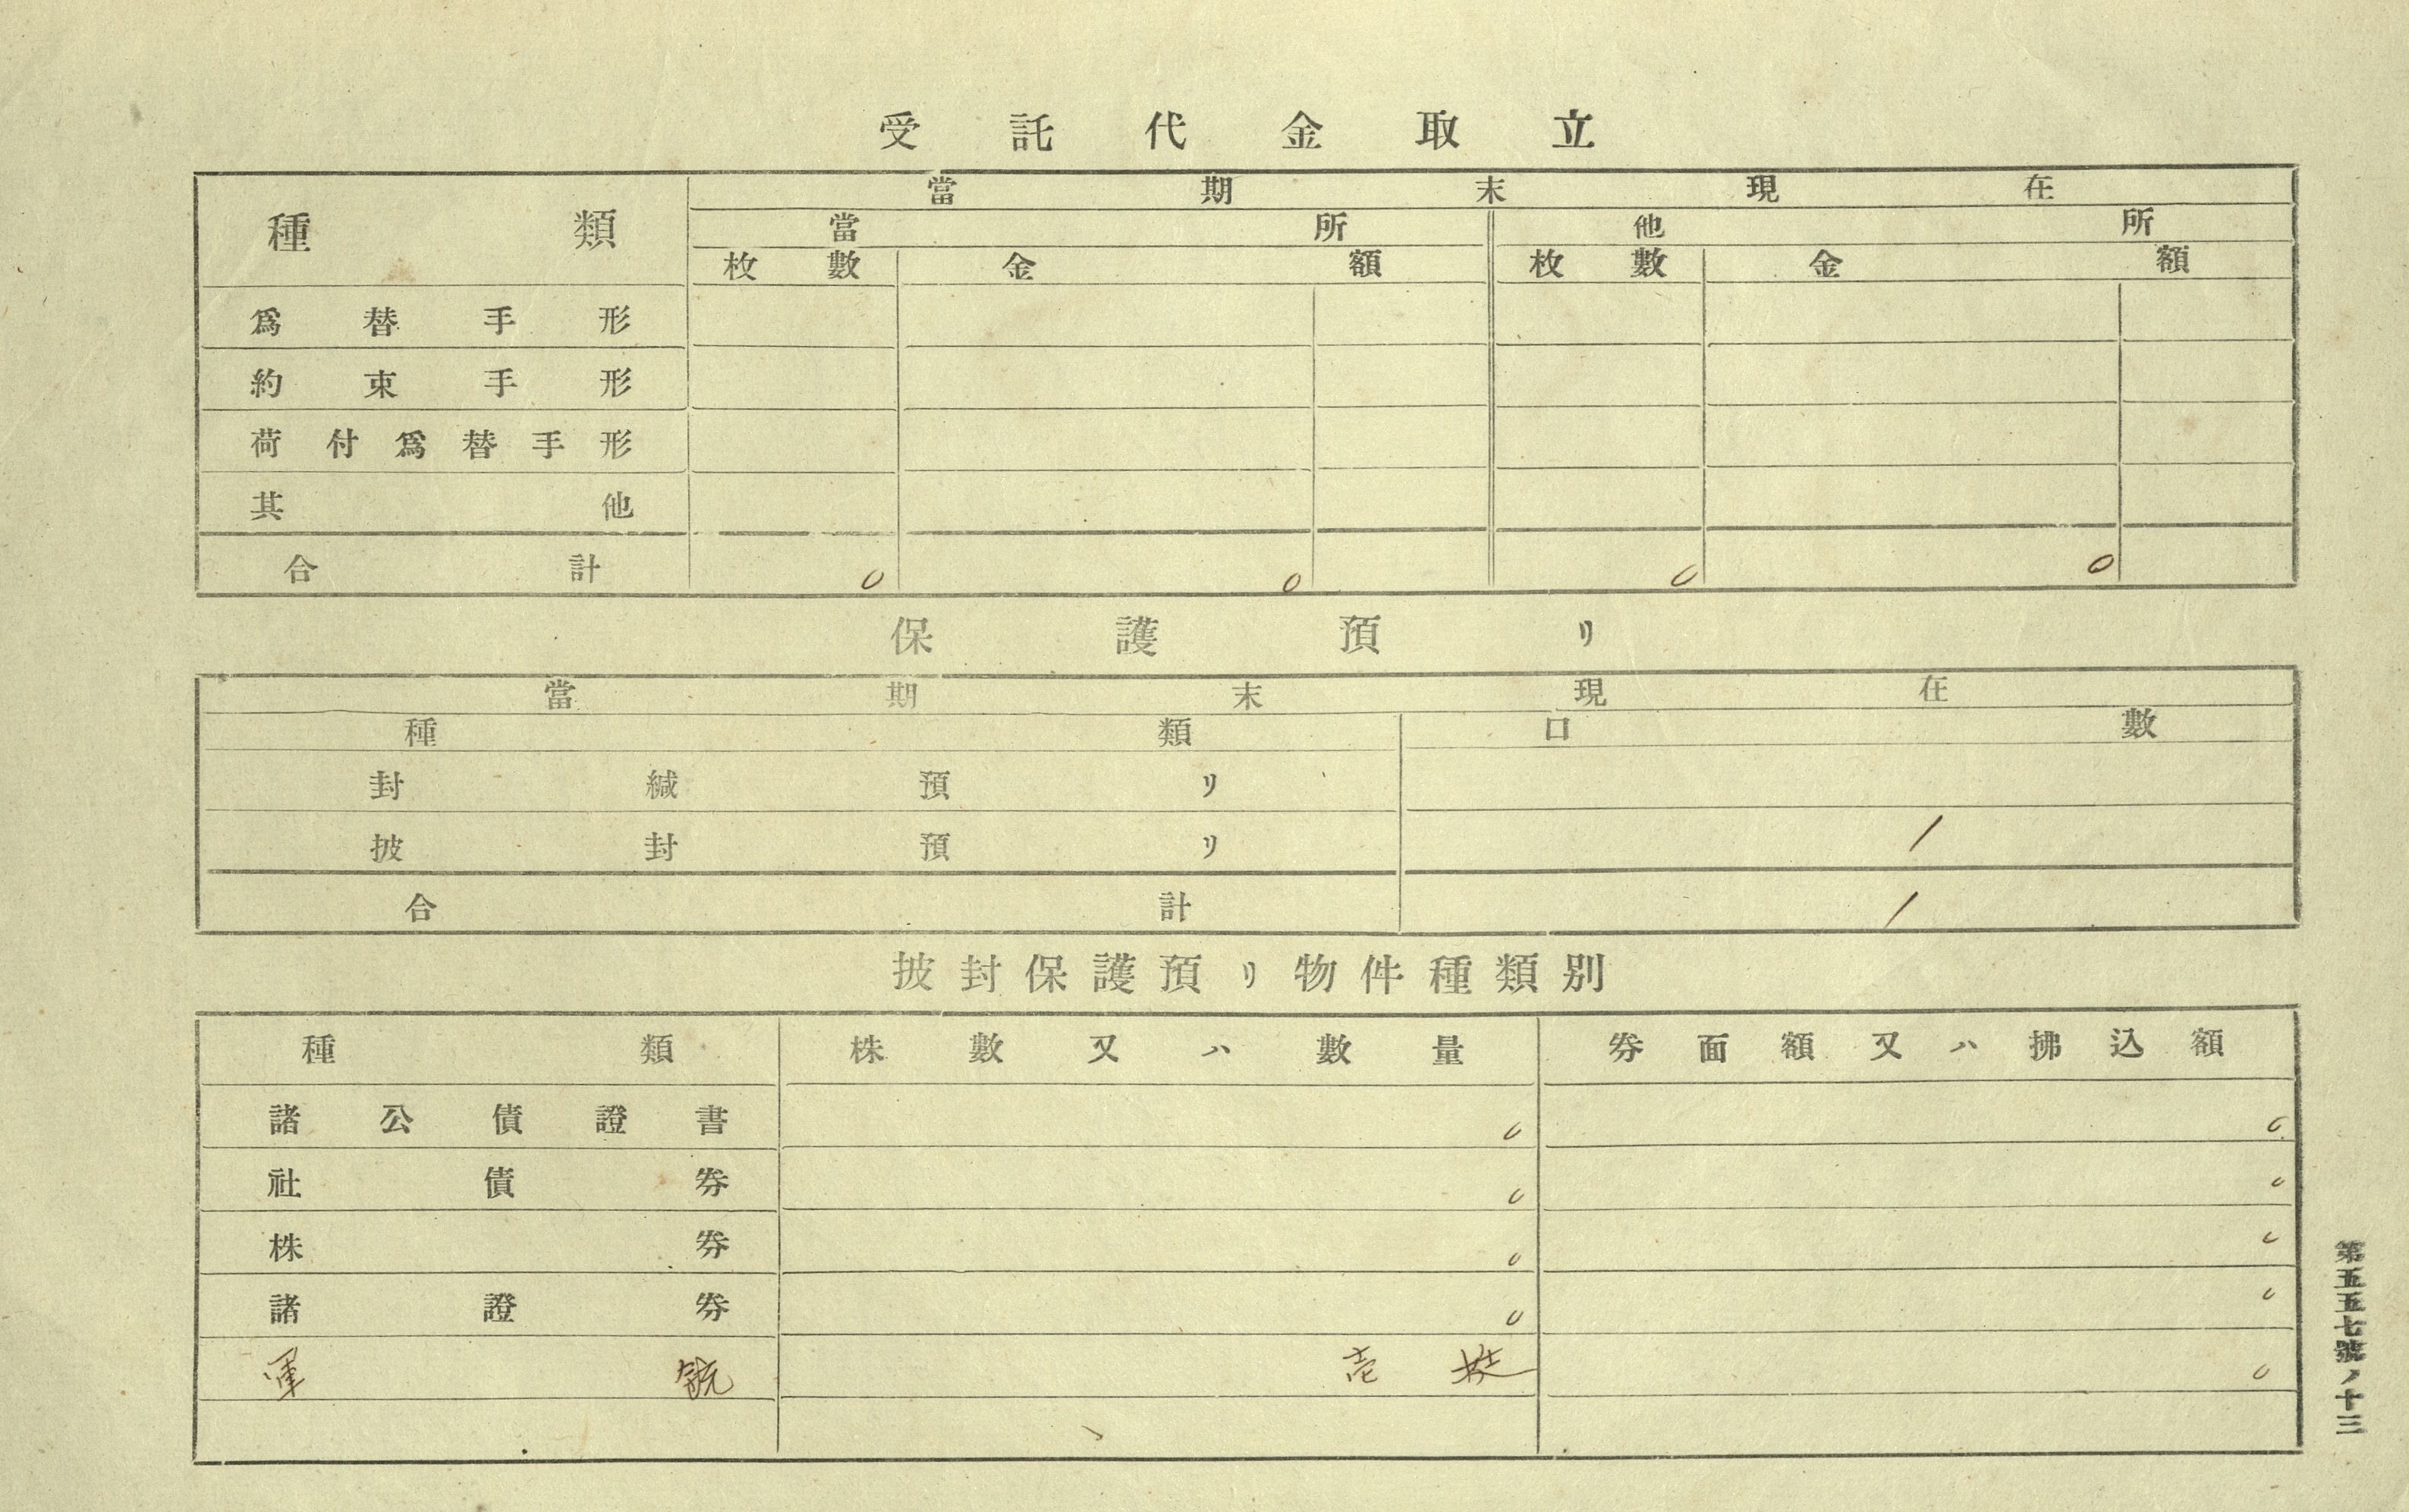 受託代金取立
種類 當期末現在
當所 他所
枚數 金額 枚數 金額
爲替手形
約束手形
荷付爲替手形
其他
合計 0 0 0 0
保護預リ
當期末現在
種類 口數
封緘預リ
披封預リ 1
合計 1
披封保護預リ物件種類別
種類 株數又ハ數量 券面額又ハ拂込額
諸公債證書 0 0
社債券 0 0
株券 0 0
諸證券 0 0
軍銃 壱挺 0
第五五七號ノ十三